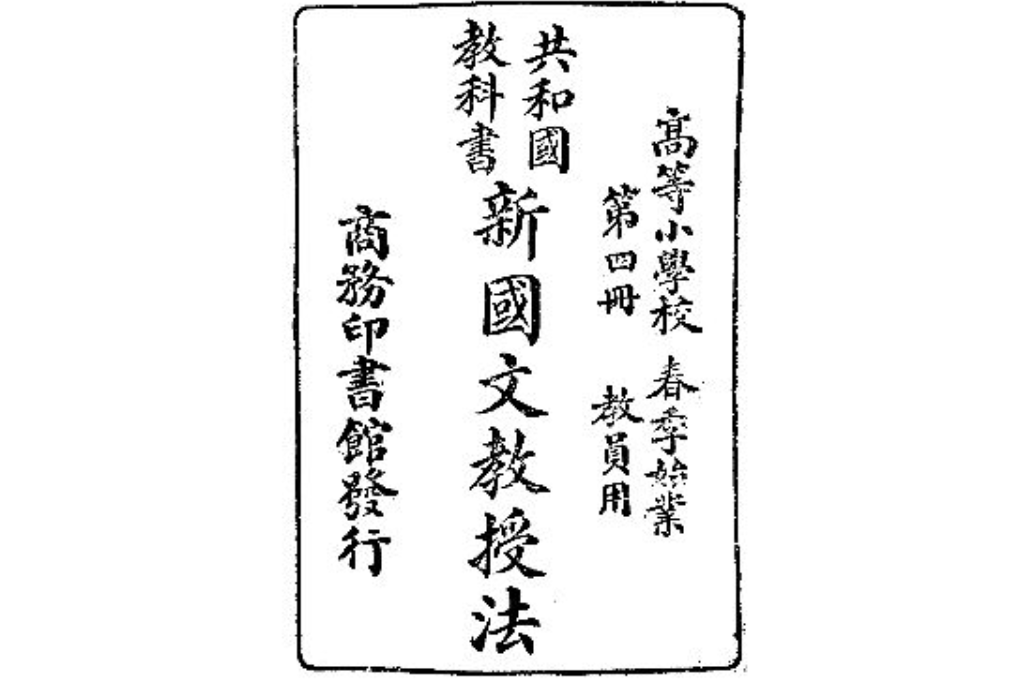 高等小學校 春季始業
第四冊 教員用
共和國
教科書
新國文教授法
商務印書館發行